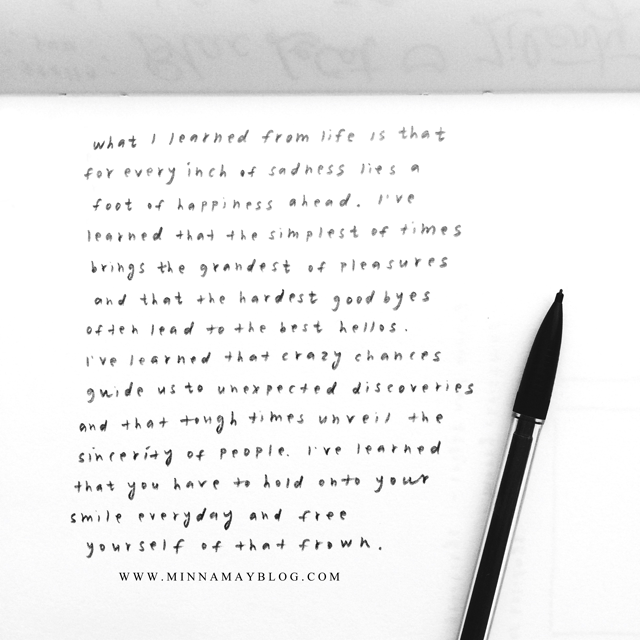 what I learned from life is that
for every inch of sadness lies a
foot of happiness ahead. I've
learned that the simplest of times
brings the grandest of pleasures
and that the hardest goodbyes
often lead to the best hellos.
I've learned that crazy chances
guide us to unexpected discoveries
and that tough times unveil the
sincerity of people. I've learned
that you have to hold onto your
smile everyday and free
yourself of that frown.
WWW.MINNAMAYBLOG.COM